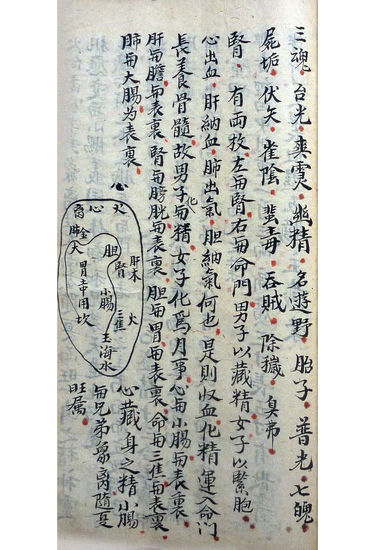 三魂 台光 爽灵 幽精 名遊野 胎子 普光 七魄
屍垢 伏矢 雀陰 蜚毒 吞賊 除穢 臭帝
腎 有両枚左爲腎右爲命門男子以藏精女子以繫胞
心出血 肝納血肺出氣 胆納氣何也 是則収血化精運入命门
長養骨髓故男子化爲精女子化爲月事心爲小腸爲表裏
肝爲膽爲表裏 腎爲膀胱爲表裏 胆爲胃爲表裏 命爲三焦爲表裏
肺爲大腸为表裏
心藏身之精小腸
爲兄弟象离隨夏
旺属
心
火
心
离
肺金
大
胃
胆
腎
小腸
肝木
三焦
火
玉海水